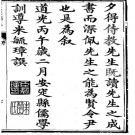 夕得侍教先生既讀先生之成
書而深佩先生之能為賢令尹
也是為叙
道光丙午歲二月安定縣儒學
訓導米毓璋譔